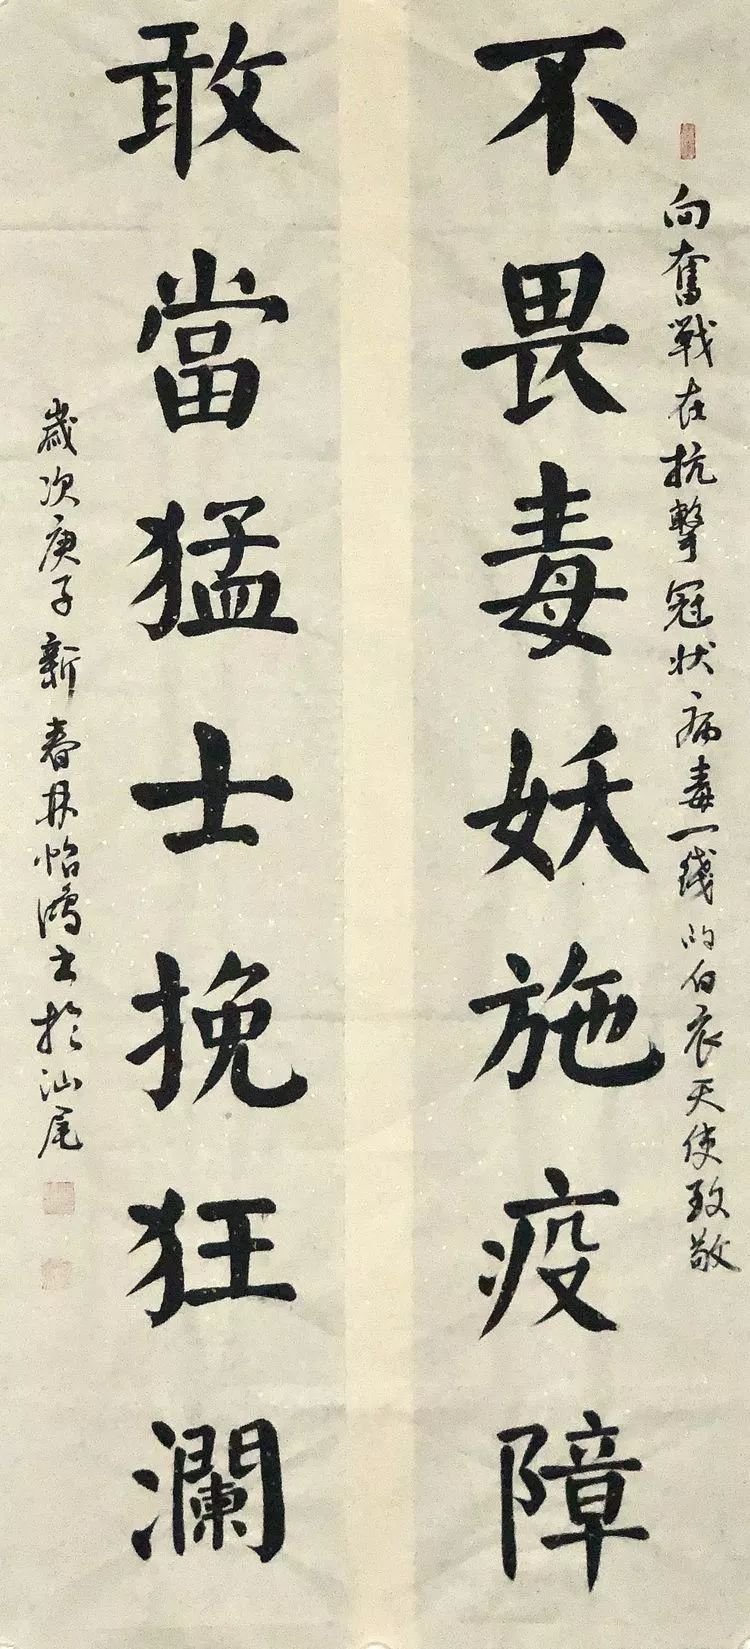 向奮戰在抗擊冠狀病毒一线的白衣天使致敬
不畏毒妖施疫障
敢當猛士挽狂瀾
歲次庚子新春林怡鴻書於汕尾